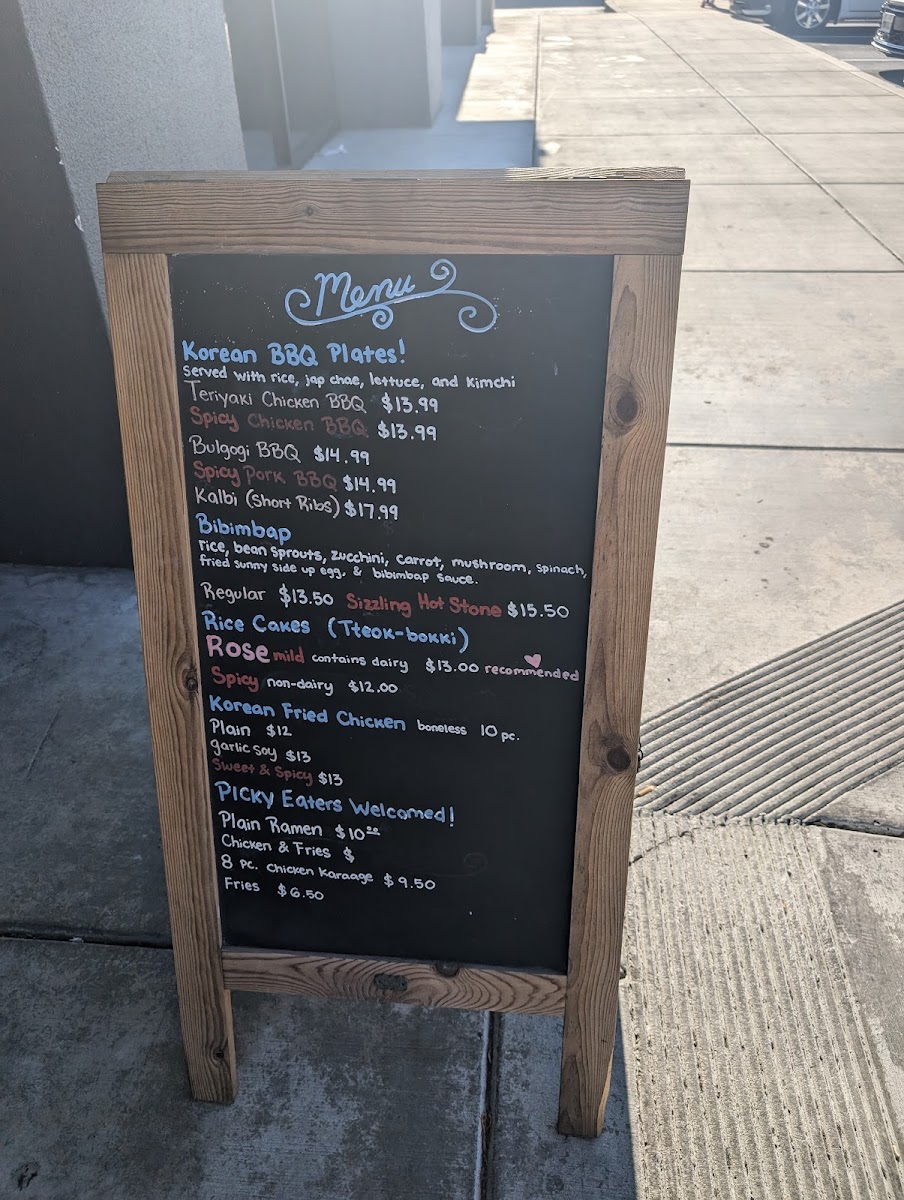 Menu
Korean BBQ Plates!
served with rice, jap chae, lettuce, and kimchi
Teriyaki Chicken BBQ $13.99
Spicy Chicken BBQ $13.99
Bulgogi BBQ $14.99
Spicy Pork BBQ $14.99
Kalbi (Short Ribs) $17.99
Bibimbap
rice, bean sprouts, zucchini, carrot, mushroom, spinach,
fried sunny side up egg, & bibimbap sauce.
Regular $13.50 Sizzling Hot Stone $15.50
Rice Cakes (Tteok-bokki)
Rose mild contains dairy $13.00 recommended
Spicy non-dairy $12.00
Korean Fried Chicken boneless 10 pc.
Plain $12
garlic soy $13
Sweet & Spicy $13
Picky Eaters Welcomed!
Plain Ramen $10.00
Chicken & Fries $
8 pc. Chicken Karaage $9.50
Fries $6.50